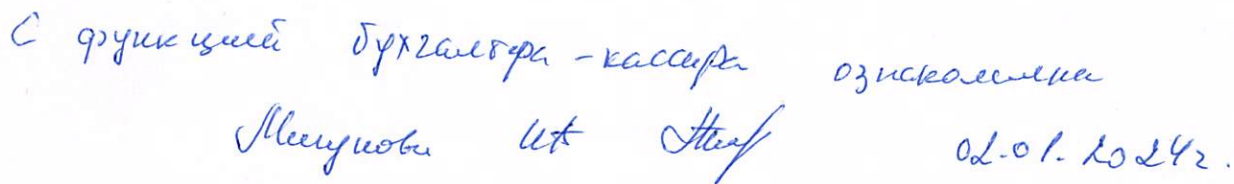 С функцией бухгалтера-кассира ознакомлена
02.01.2024г.